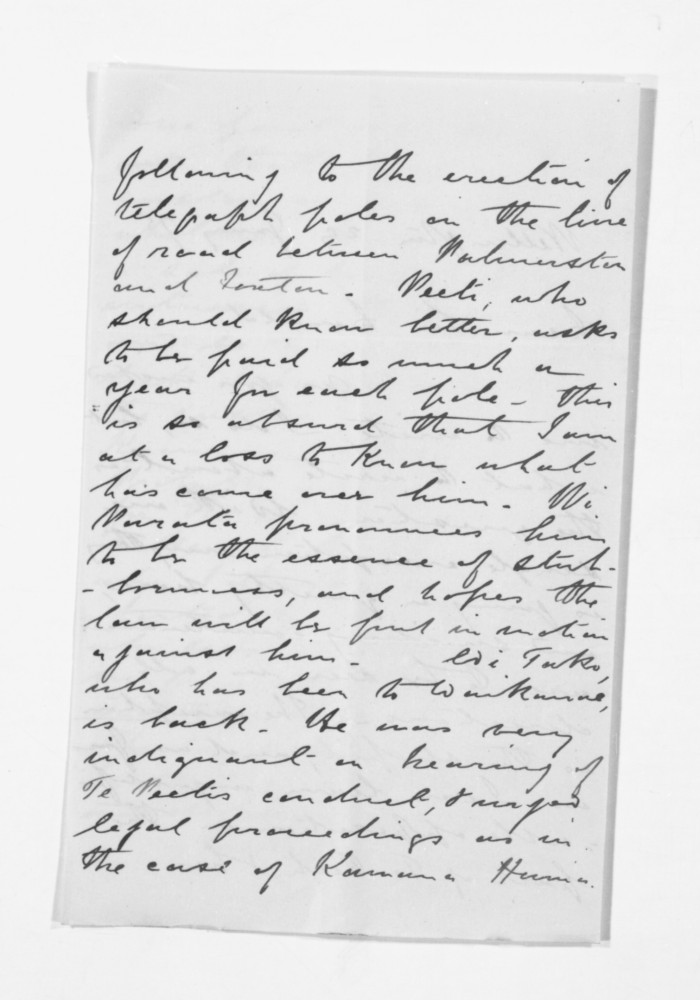 following to the erection of
telegraph poles on the line
of road between Palmerston
and Foxton - Peeti, who
should know better, asks
to be paid so much a
year for each pole - This
is so absurd that I am
at a loss to know what
has come over him - Wi
Parata pronounces him
to be the essence of stub-
-bornness, and hopes the
law will be put in motion
against him - Wi Tako,
who has been to Waikanae,
is back - He was very
indignant on hearing of
Te Peetis conduct, & urged
legal proceedings as in
the case of